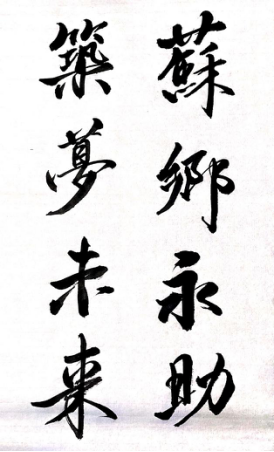 蘇鄉永助
築夢未來